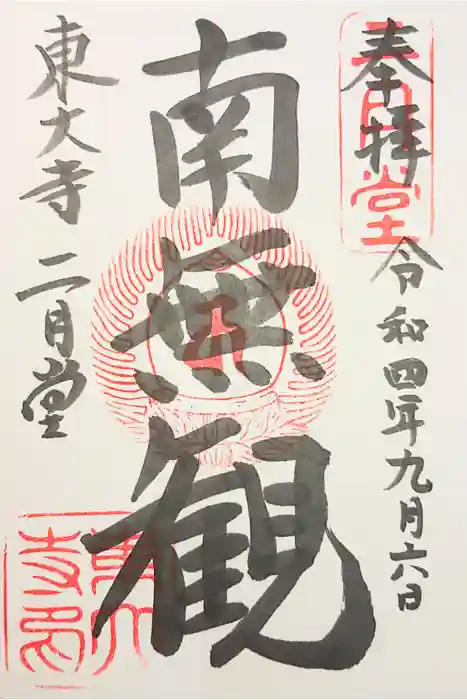 奉拝
二月堂
令和四年九月六日
南無観
東大寺
二月堂